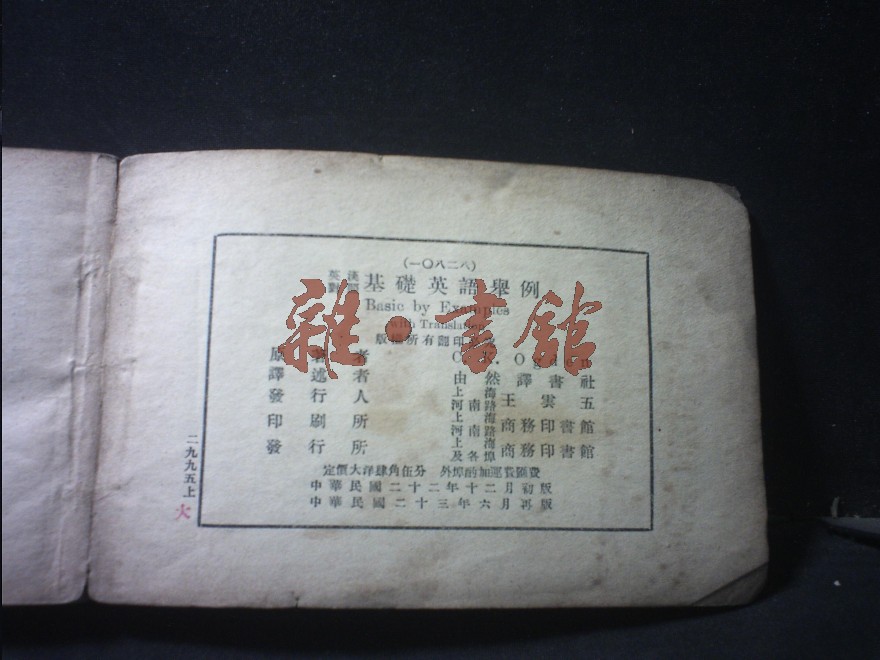 （一〇八二八）
英漢對照 基礎英語舉例
Basic by Examples
with Translation
版權所有翻印
原著者 C. K. Ogden
譯述者 由然譯書社
發行人 上海河南路 王雲五
印刷所 上海河南路 商務印書館
發行所 上海及各埠 商務印書館
定價大洋肆角伍分 外埠酌加運費匯費
中華民國二十二年十二月初版
中華民國二十三年六月再版
二九九五上
大
雜·書館